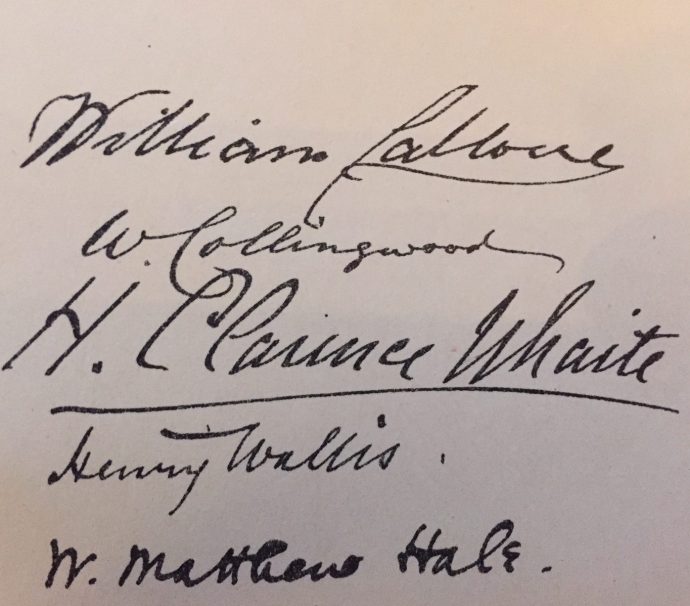 William Callow
W. Collingwood
H. Clarence Whaite
Henry Wallis.
W. Matthew Hale.